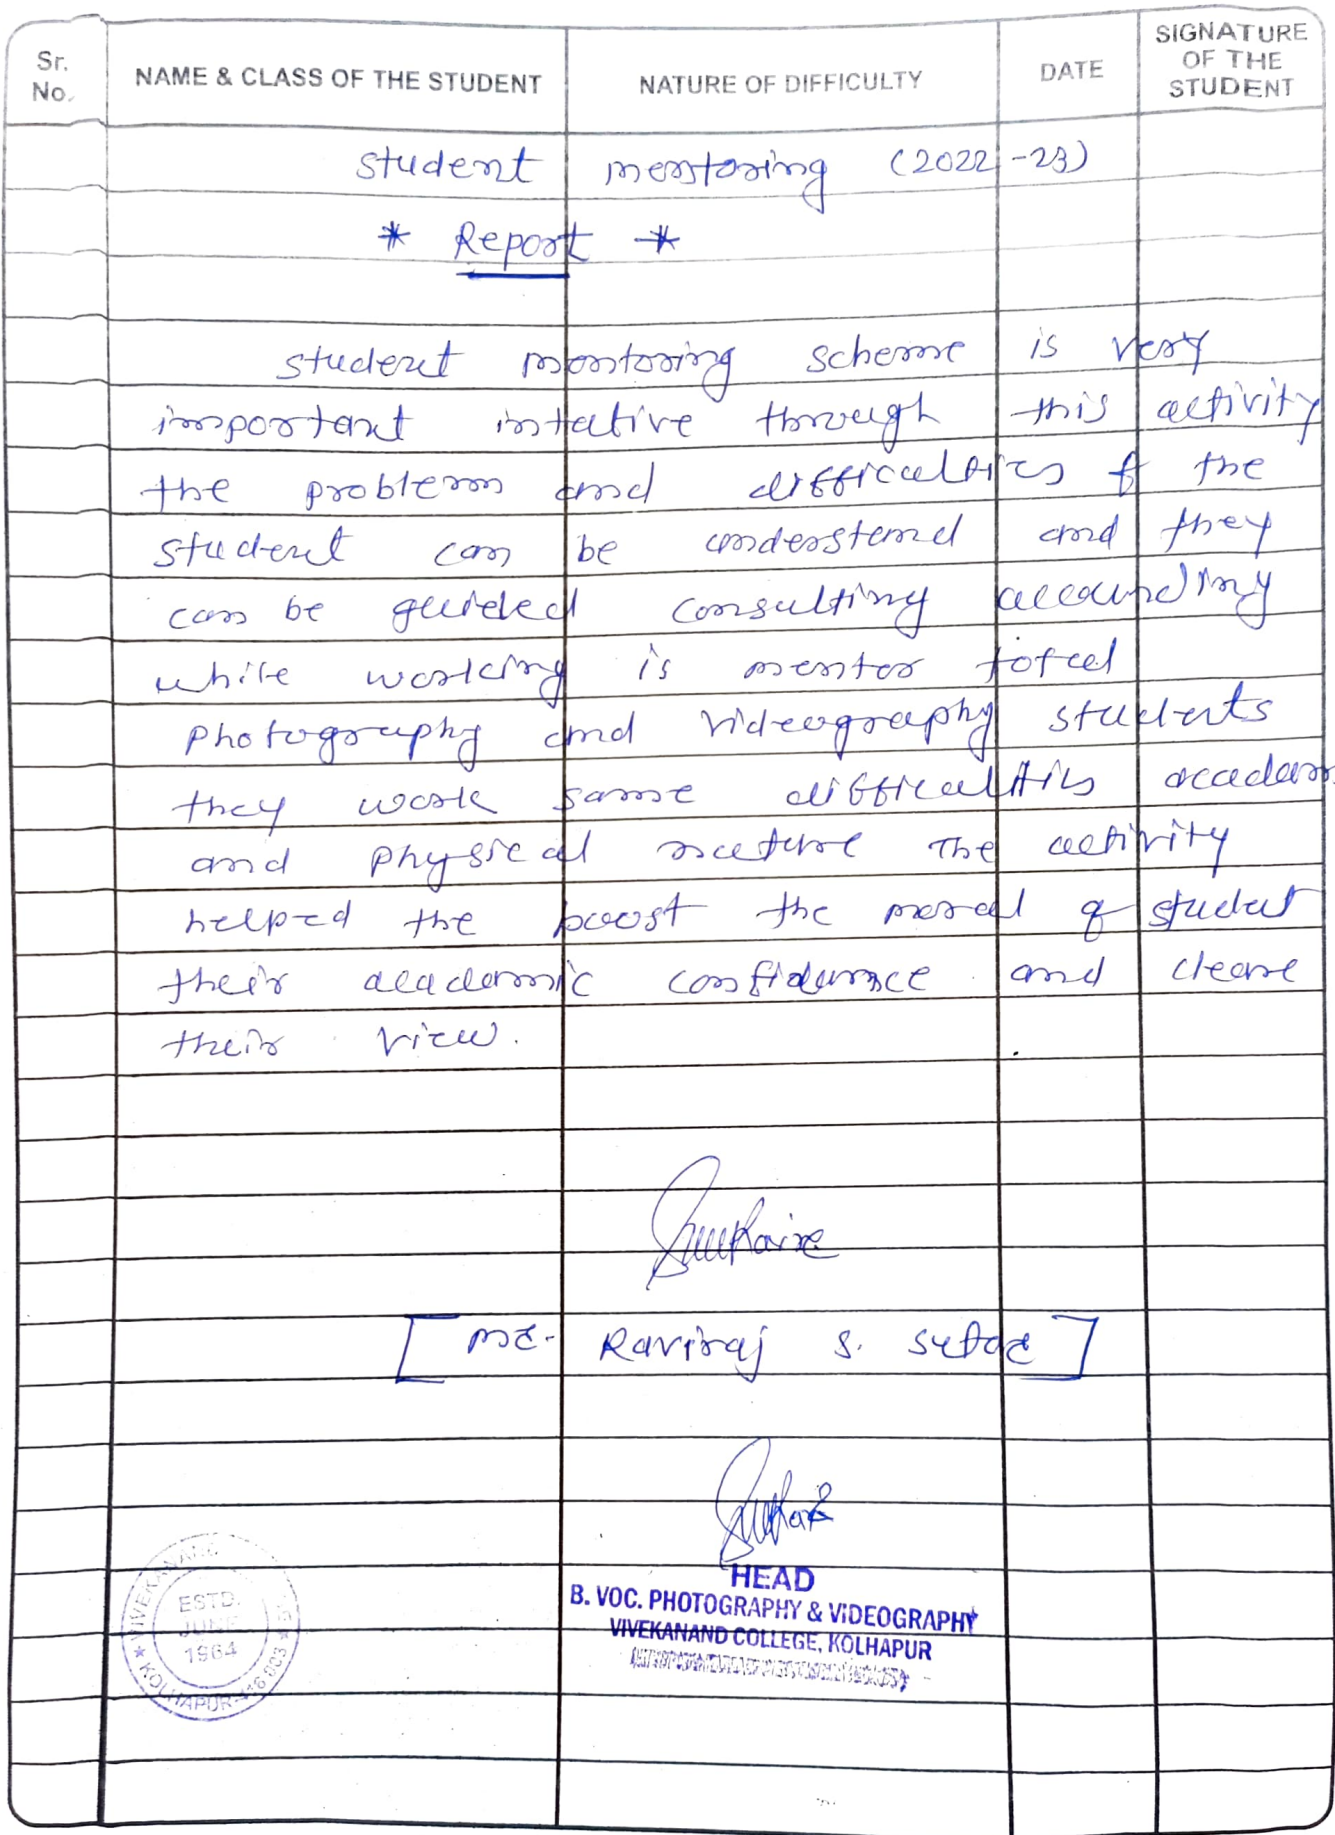 Sr. No.
NAME & CLASS OF THE STUDENT
NATURE OF DIFFICULTY
DATE
SIGNATURE OF THE STUDENT
student mentoring (2022-23)
* Report *
student mentoring scheme is very
important intative through this activity
the problem and difficulties of the
student can be understand and they
can be guided consulting accounding
while working is mentor totel
photography and videography students
they work same difficulties acadam
and physical nature The activity
helped the boost the moral of student
their academic confidance and cleare
their view.
[ Mr. Raviraj S. Sutar ]
HEAD
B. VOC. PHOTOGRAPHY & VIDEOGRAPHY
VIVEKANAND COLLEGE, KOLHAPUR
VIVEKANAND
ESTD.
JUNE
1964
KOLHAPUR-416 003